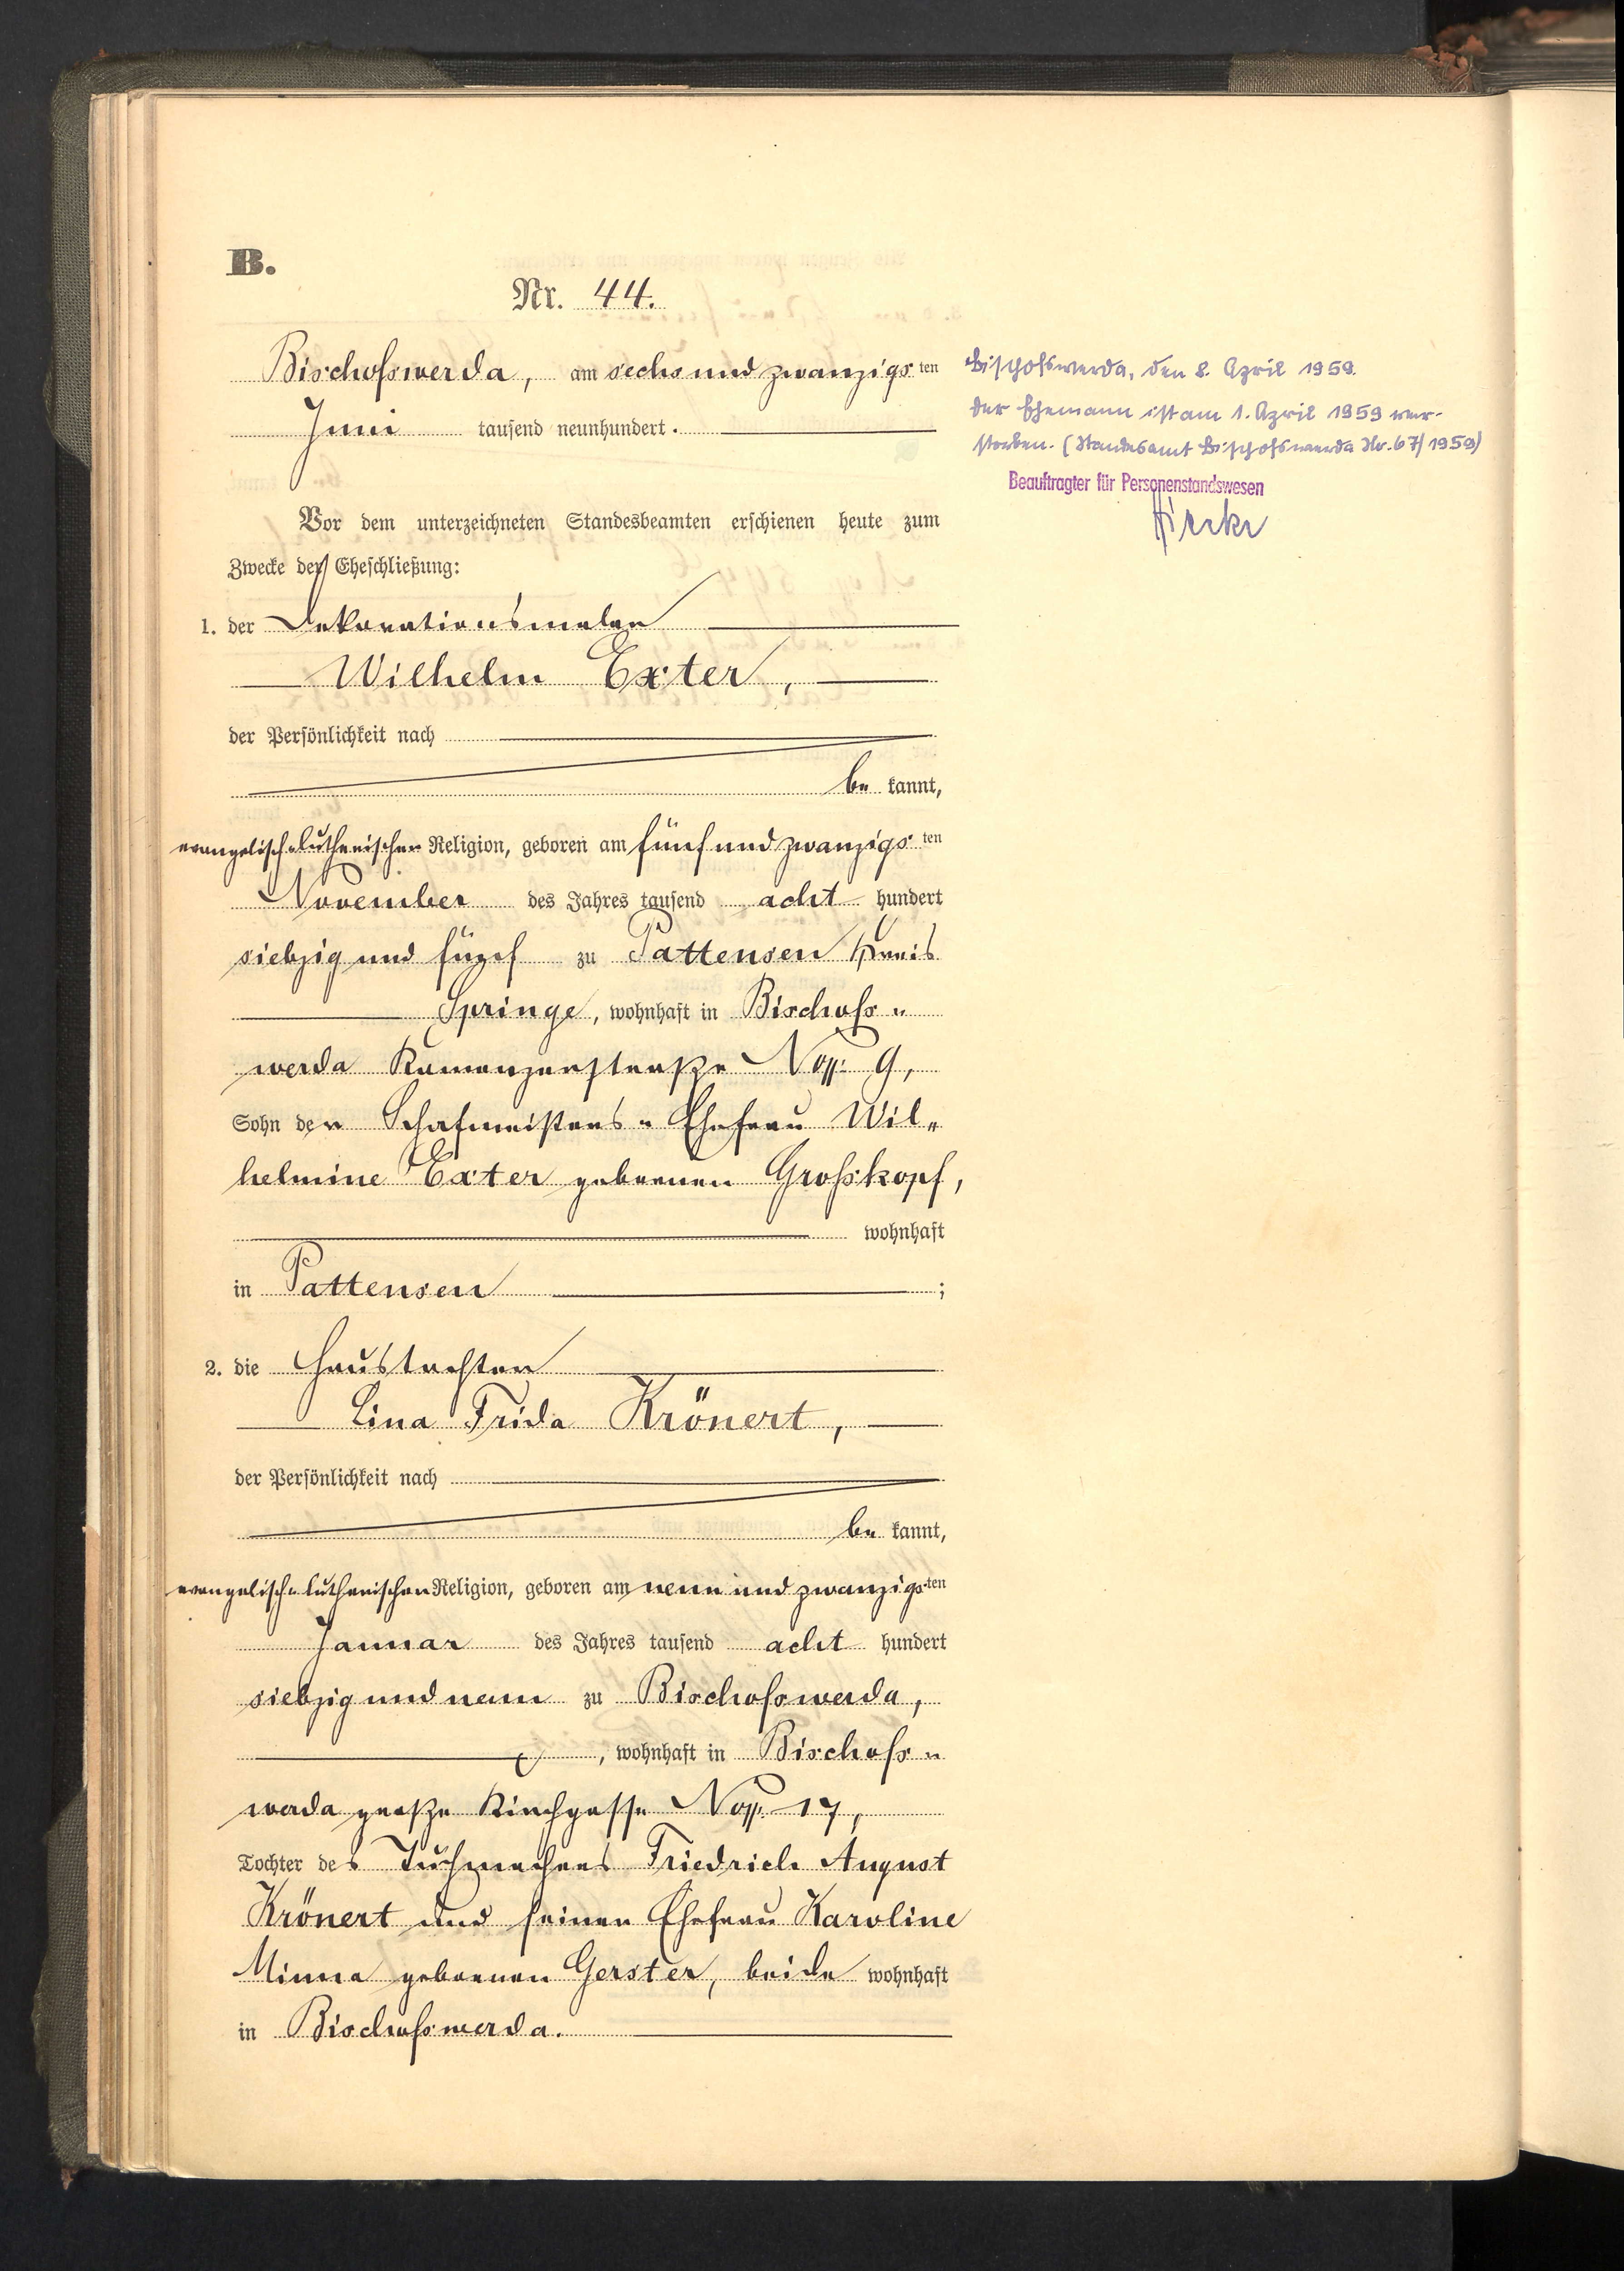 B.
Nr. 44.
Bischofswerda, am sechs und zwanzigsten
Juni tausend neunhundert.
Vor dem unterzeichneten Standesbeamten erschienen heute zum
Zwecke der Eheschließung:
1. der Dekorationsmaler
Wilhelm Exter,
der Persönlichkeit nach
be kannt,
evangelisch-lutherischer Religion, geboren am fünf und zwanzigsten
November des Jahres tausend acht hundert
siebzig und fünf zu Pattensen Kreis
Springe, wohnhaft in Bischofs-
werda Kamenzerstraße No. 9,
Sohn der Schafmeisters-Ehefrau Wil-
helmine Exter geborenen Grosskopf,
wohnhaft
in Pattensen ;
2. die Haustochter
Lina Frida Krönert,
der Persönlichkeit nach
be kannt,
evangelisch-lutherischer Religion, geboren am neun und zwanzigsten
Januar des Jahres tausend acht hundert
siebzig und neun zu Bischofswerda,
, wohnhaft in Bischofs-
werda große Kirchgasse No. 17,
Tochter des Tuchmachers Friedrich August
Krönert und seiner Ehefrau Karoline
Minna geborenen Gerster, beide wohnhaft
in Bischofswerda.
Bischofswerda, den 8. April 1959.
Der Ehemann ist am 1. April 1959 ver-
storben. (Standesamt Bischofswerda Nr. 67/1959)
Beauftragter für Personenstandswesen